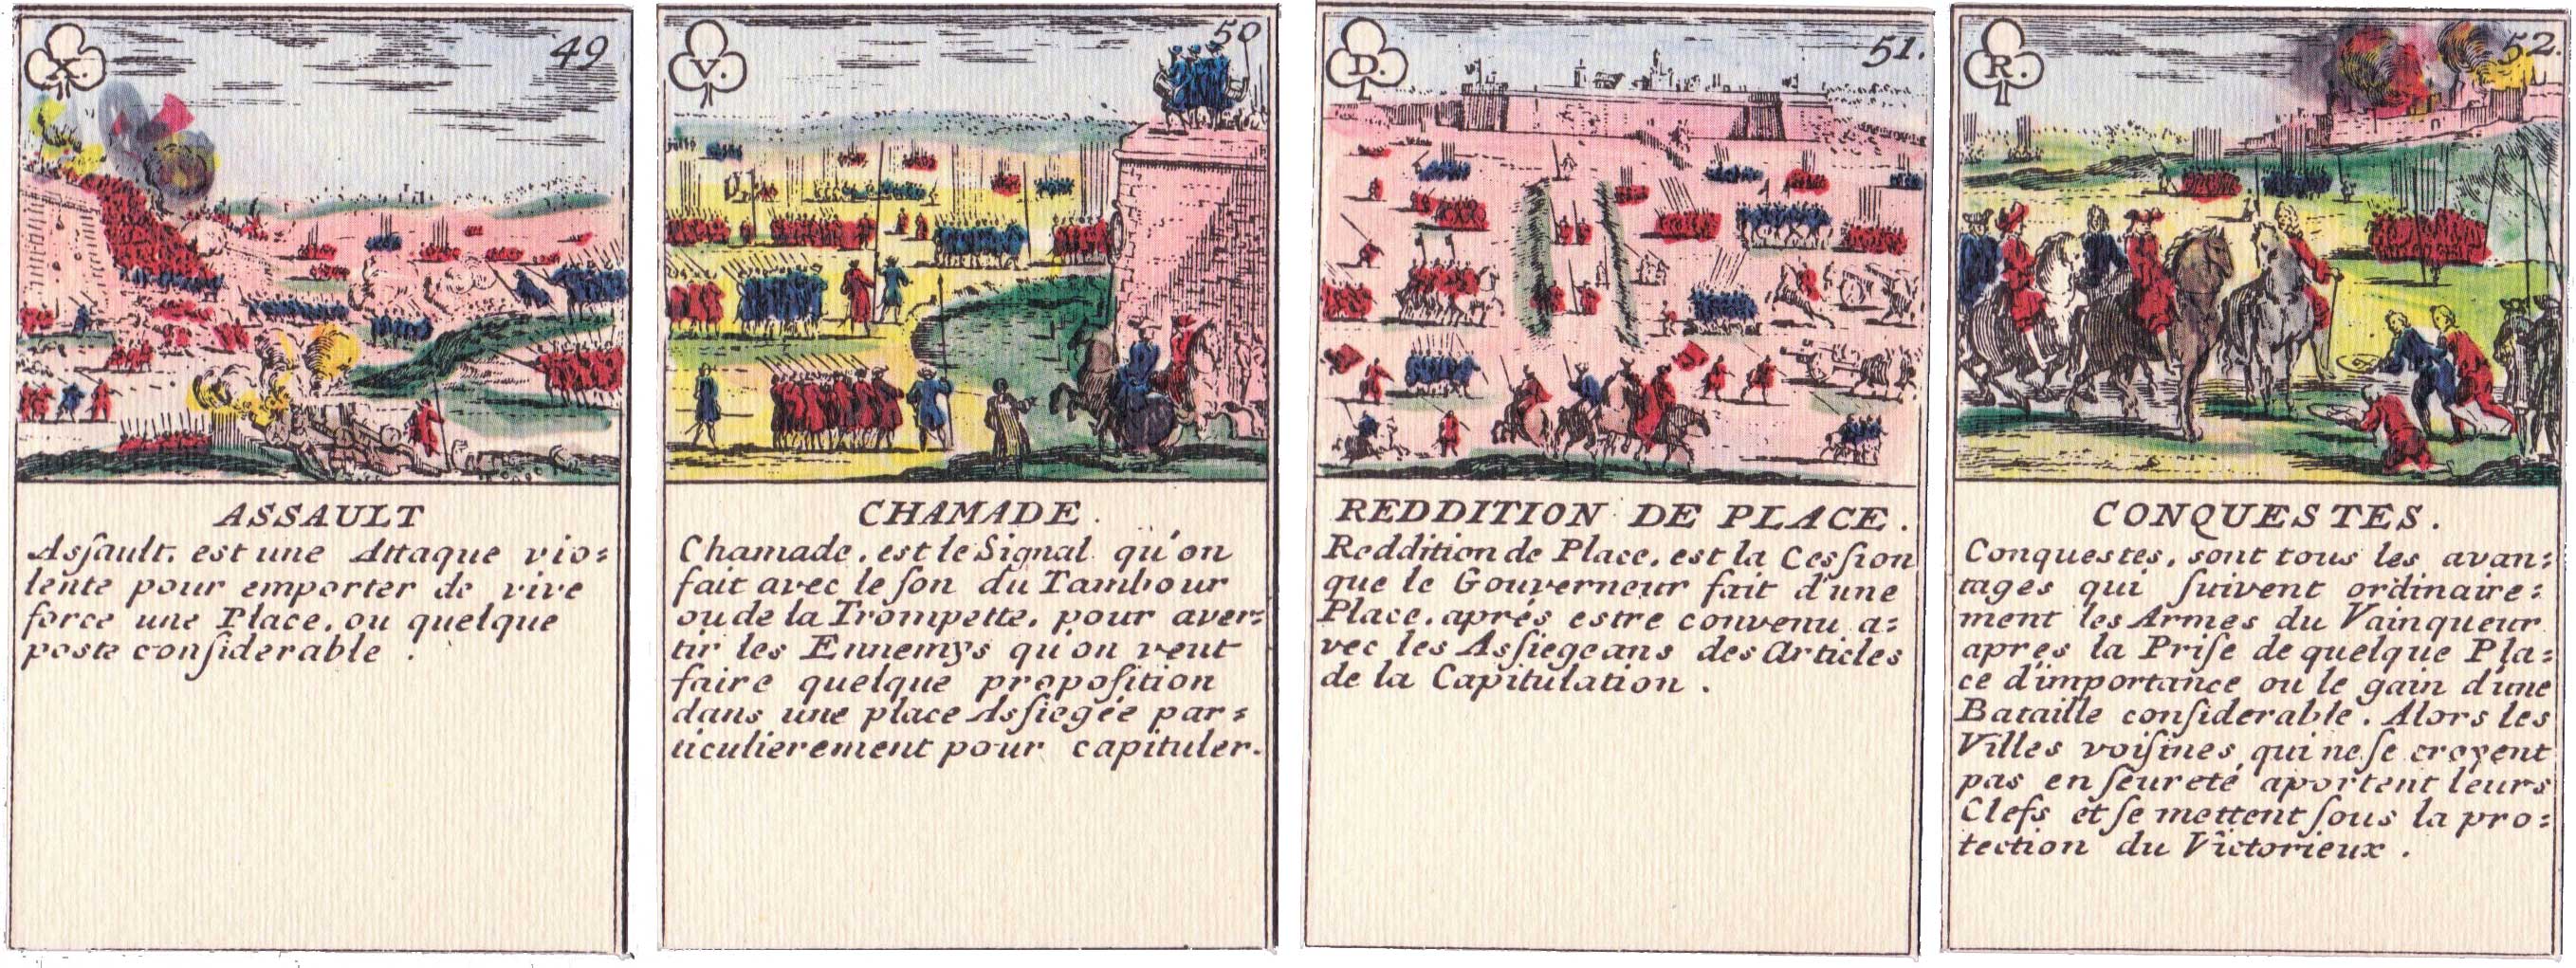 X.
49
ASSAULT
Aſsault, est une Attaque vio=
lente pour emporter de vive
force une Place, ou quelque
poste conſiderable .
V.
50
CHAMADE.
Chamade, est le Signal qu'on
fait avec le ſon du Tambour
ou de la Trompette, pour aver=
tir les Ennemys qu'on veut
faire quelque propoſition
dans une place Aſsiegée par=
ticulierement pour capituler.
D.
51.
REDDITION DE PLACE.
Reddition de Place, est la Ceſsion
que le Gouverneur fait d'une
Place, aprés estre convenu a=
vec les Aſsiegeans des Articles
de la Capitulation .
R.
52.
CONQUESTES.
Conquestes, sont tous les avan=
tages qui ſuivent ordinaire=
ment les Armes du Vainqueur
apres la Priſe de quelque Pla=
ce d'importance ou le gain d'une
Bataille conſiderable. Alors les
Villes voiſines, qui ne ſe croyent
pas en ſeureté aportent leurs
Clefs et ſe mettent ſous la pro=
tection du Victorieux .